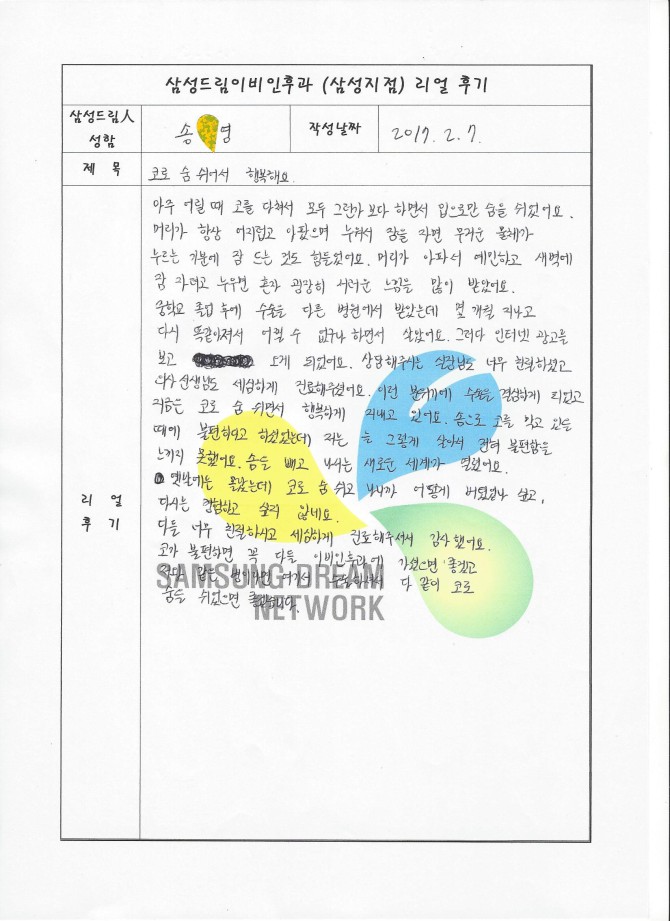 삼성드림이비인후과 (삼성지점) 리얼 후기
삼성드림人
성함
송 영
작성날짜
2017. 2. 7.
제 목
코로 숨 쉬어서 행복해요.
리 얼
후 기
아주 어릴 때 코를 다쳐서 모두 그런가 보다 하면서 입으로만 숨을 쉬었어요.
머리가 항상 어지럽고 아팠으며 누워서 잠을 자면 무거운 물체가
누르는 기분에 잠 드는 것도 힘들었어요. 머리가 아파서 예민하고 새벽에
잠 자려고 누우면 혼자 굉장히 서러운 느낌을 많이 받았어요.
중학교 졸업 후에 수술을 다른 병원에서 받았는데 몇 개월 지나고
다시 똑같아져서 어쩔 수 없구나 하면서 살았어요. 그러다 인터넷 광고를
보고 오게 되었어요. 상담해주시는 실장님도 너무 친절하셨고
의사선생님도 세심하게 진료해주셨어요. 이런 분위기에 수술을 결심하게 되었고
지금은 코로 숨 쉬면서 행복하게 지내고 있어요. 솜으로 코를 막고 있을
때에 불편하다고 하셨었는데 저는 늘 그렇게 살아서 전혀 불편함을
느끼지 못했어요. 솜을 빼고 나서는 새로운 세계가 열렸어요.
옛날에는 몰랐는데 코로 숨 쉬고 나니까 어떻게 버텼었나 싶고,
다시는 경험하고 싶지 않네요.
다들 너무 친절하시고 세심하게 진료해주셔서 감사했어요.
코가 불편하면 꼭 다들 이비인후과에 가셨으면 좋겠고
저와 같은 여기서 다 같이 코로
숨을 쉬었으면 좋겠습니다.
SAMSUNG DREAM
NETWORK